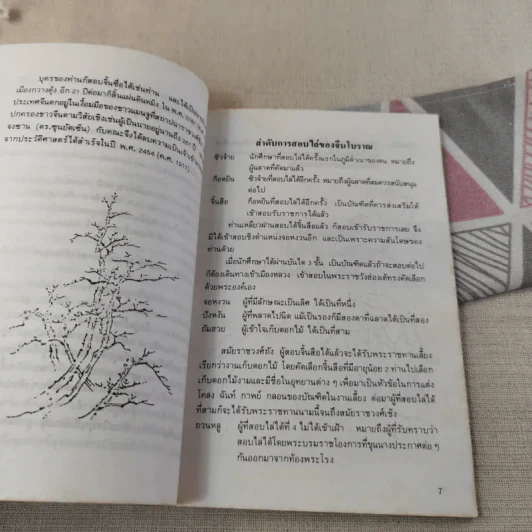 บุตรของท่านก็สอบจิ้นซื่อได้เช่นท่าน และได้เป็น
เมืองกวางตุ้ง อีก 21 ปีต่อมาก็สิ้นแผ่นดินหมิง ใน พ.ศ. 2187
ประเทศจีนตกอยู่ในเงื้อมมือของชาวแมนจู
ปกครองชาวจีนตามวิสัยเชิงเช่นผู้เป็นนายอยู่นานถึง 267 ปี
จงซาน (ดร.ซุนยัดเซ็น) กับคณะจึงได้
จากประวัติศาสตร์ได้สำเร็จในปี พ.ศ. 2454 (ค.ศ. 1911)
ลำดับการสอบไล่ของจีนโบราณ
ซิ่วจ๋าย นักศึกษาที่สอบไล่ได้ครั้งแรกในภูมิลำเนาของตน หมายถึง
ผู้ฉลาดที่คัดมาแล้ว
กือหยิน ซิ่วจ๋ายที่สอบไล่ได้อีกครั้ง หมายถึงผู้ฉลาดที่สมควรสนับสนุน
ต่อไป
จิ้นสือ กือหยินที่สอบไล่ได้อีกครั้ง เป็นบัณฑิตที่ควรส่งเสริมให้
เข้าสอบรับราชการได้แล้ว
ท่านเหลียวฝานสอบได้จิ้นสือแล้ว ก็สอบเข้ารับราชการเลย จึง
มิได้เข้าสอบชิงตำแหน่งจอหงวนอีก และเป็นเพราะความสันโดษของ
ท่านด้วย
เมื่อนักศึกษาได้ผ่านบันได 3 ขั้น เป็นบัณฑิตแล้วถ้าจะสอบต่อไป
ก็ต้องเดินทางเข้าเมืองหลวง เข้าสอบในพระราชวังฮ่องเต้ทรงคัดเลือก
ด้วยพระองค์เอง
จอหงวน ผู้ที่มีลักษณะเป็นเลิศ ได้เป็นที่หนึ่ง
ปังหงัน ผู้ที่พลาดไปนิด แม้เป็นรองก็มีสองตาที่ฉลาดได้เป็นที่สอง
ถ้ำฮวย ผู้เข้าใจเก็บดอกไม้ ได้เป็นที่สาม
สมัยราชวงศ์ถัง ผู้สอบจิ้นสือได้แล้วจะได้รับพระราชทานเลี้ยง
เรียกว่างานเก็บดอกไม้ โดยคัดเลือกจิ้นสือที่มีอายุน้อย 2 ท่านไปเลือก
เก็บดอกไม้งามและมีชื่อในอุทยานต่าง ๆ เพื่อมาเป็นหัวข้อในการแต่ง
โคลง ฉันท์ กาพย์ กลอนของบัณฑิตในงานเลี้ยง ต่อมาผู้ที่สอบไล่ได้
ที่สามก็จะได้รับพระราชทานนามนี้จนถึงสมัยราชวงศ์เช็ง
ถวนหลู ผู้ที่สอบไล่ได้ที่ 4 ไม่ได้เข้าเฝ้า หมายถึงผู้ที่รับทราบว่า
สอบไล่ได้โดยพระบรมราชโองการที่ขุนนางประกาศต่อ ๆ
กันออกมาจากท้องพระโรง
7